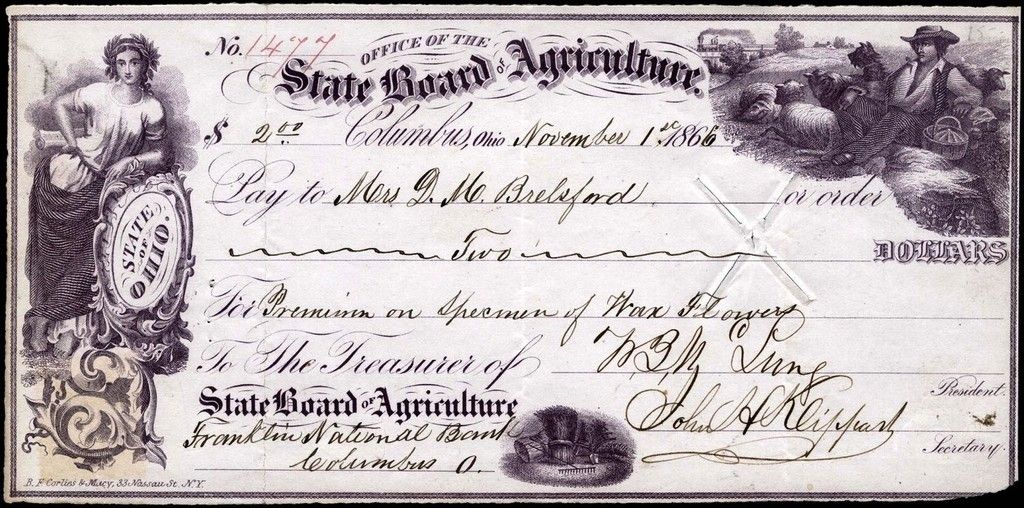 No. 1477
OFFICE OF THE
State Board of Agriculture.
$ 2.00 Columbus, Ohio November 1st 1866
Pay to Mrs D. M. Brelsford or order
Two DOLLARS
For Premium on specimen of Wax Flowers
To The Treasurer of
State Board of Agriculture
Franklin National Bank
Columbus O.
President.
John H Klippart
Secretary.
STATE
OF
OHIO.
B. F. Corlies & Macy, 33 Nassau St. N.Y.